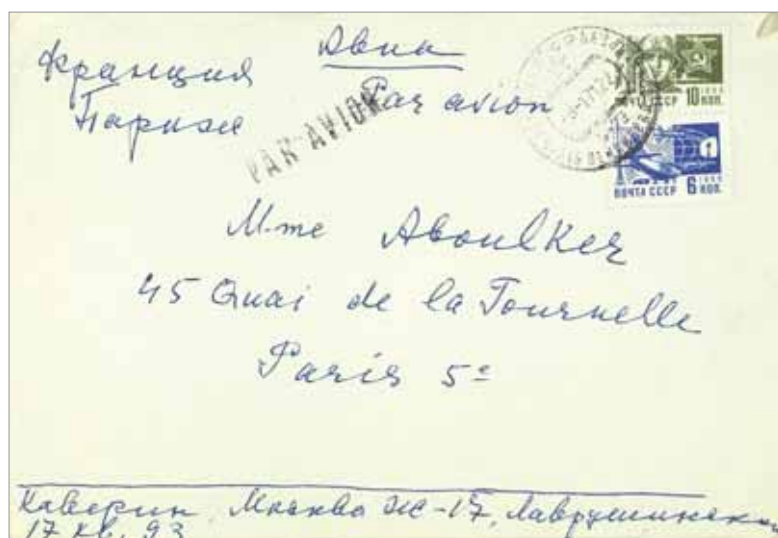 Франция
Париж
Авиа
Par avion
PAR AVION
ПОЧТА СССР 10 КОП.
1966
ПОЧТА СССР 6 КОП.
1966
M-me Aboulker
45 Quai de la Tournelle
Paris 5e
Каверин, Москва Ж-17, Лаврушинский
17 кв. 93